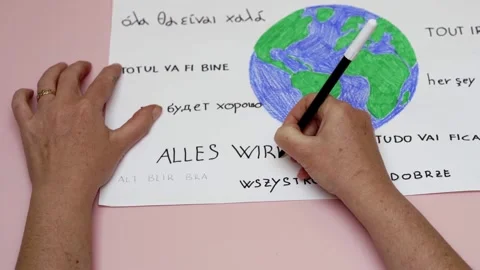 όλα θα είναι χαλά
TOUT IR
TOTUL VA FI BINE
her şey
будет хорошо
TUDO VAI FICA
ALLES WIR
ALT BLIR BRA
WSZYST DOBRZE